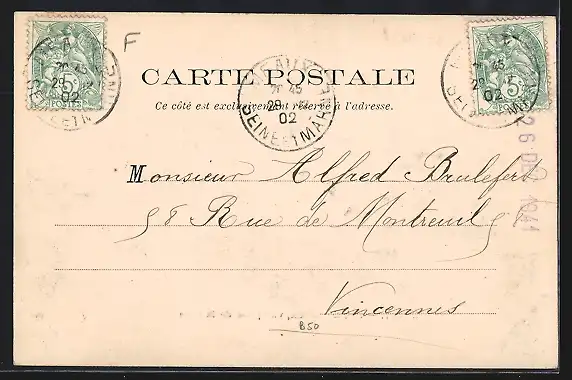 F
CARTE POSTALE
Ce côté est exclusivement réservé à l'adresse.
MEAUX
7E 45
29
02
SEINE ET MARNE
5c
POSTES
Monsieur Alfred Brulefert
58 Rue de Montreuil 58
Vincennes
B50